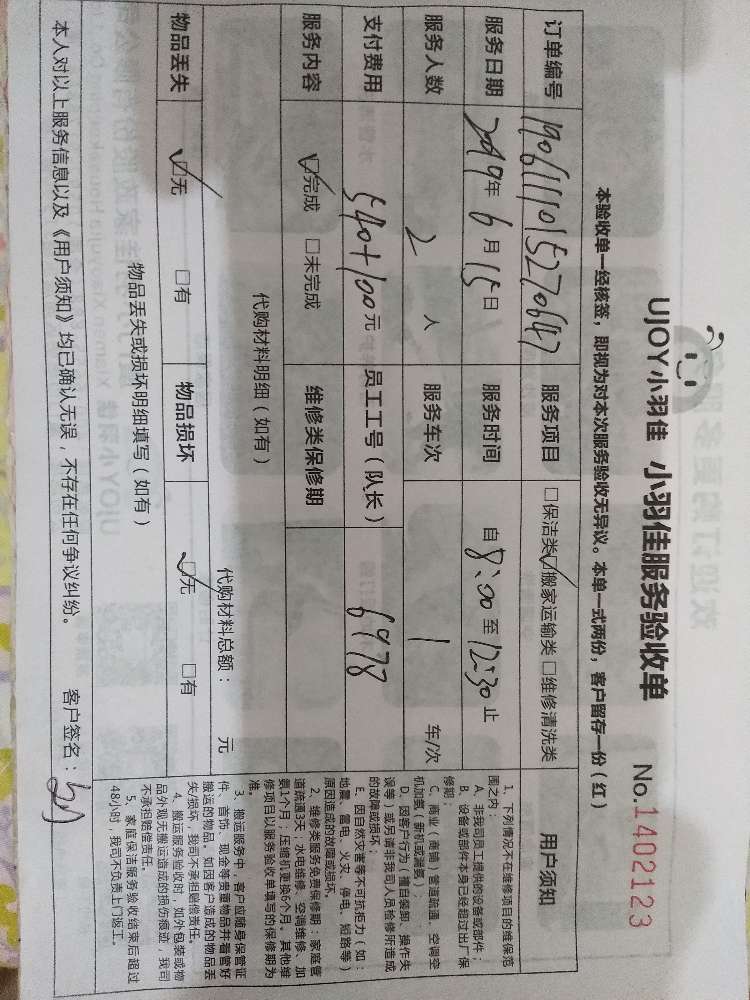 UJOY小羽佳 小羽佳服务验收单 No.1402123
本验收单一经核签，即视为对本次服务验收无异议。本单一式两份，客户留存一份（红）
订单编号 1906111015270647 服务项目 □保洁类☑搬家运输类□维修清洗类
服务日期 2019年6月15日 服务时间 自8:00至12:30止
服务人数 2人 服务车次 1 车/次
支付费用 540+100元 员工工号（队长） 6978
服务内容 ☑完成 □未完成 维修类保修期
代购材料明细（如有）
代购材料总额： 元
物品丢失 ☑无 □有 物品损坏 ☑无 □有
物品丢失或损坏明细填写（如有）
本人对以上服务信息以及《用户须知》均已确认无误，不存在任何争议纠纷。 客户签名：
用户须知
1、下列情况不在维修项目的维保范
围之内：
A、非我司员工提供的设备或部件；
B、设备或部件本身已经超过出厂保
修期；
C、商业（商铺）管道疏通、空调空
机加氨（新机或漏氨）
D、因客户行为（擅自装卸、操作失
误等）或另请非我司人员检修所造成
的故障或损坏；
E、因自然灾害等不可抗拒力（如：
地震、雷电、火灾、停电、短路等）
原因造成的故障或损坏。
2、维修类服务免费保修期：家庭管
道疏通3天；水电维修、空调维修、加
氨1个月；压缩机更换6个月。其他维
修项目以服务验收单填写的保修期为
准。
3、搬运服务中，客户应随身保管证
件、首饰、现金等贵重物品并看管好
搬运的物品。如因客户造成的物品丢
失/损坏，我司不承担赔偿责任。
4、搬运服务验收时，如外包装或物
品外观无搬运造成的损伤痕迹，我司
不承担赔偿责任。
5、家庭保洁服务验收结束后超过
48小时，我司不负责上门返工。